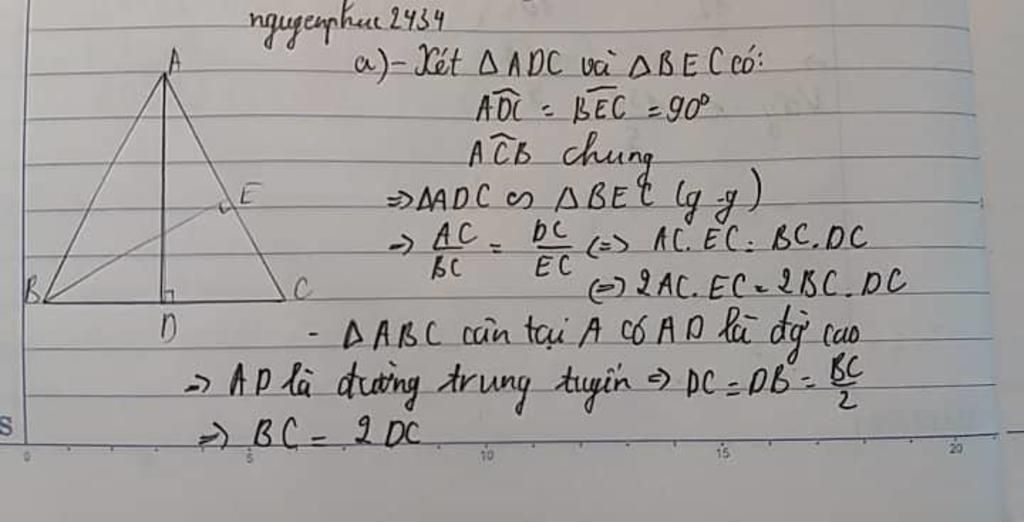 nguyenphuc2434
a) - Xét ΔADC và ΔBEC có:
A
ADC = BEC = 90°
ACB chung
E
⇒ ΔADC ∽ ΔBEC (g-g)
⇒ AC/BC = DC/EC ⇔ AC.EC = BC.DC
B C
⇔ 2AC.EC = 2BC.DC
D
- ΔABC cân tại A có AD là đg cao
⇒ AD là đường trung tuyến ⇒ DC = DB = BC/2
S
⇒ BC = 2DC
0 5 10 15 20